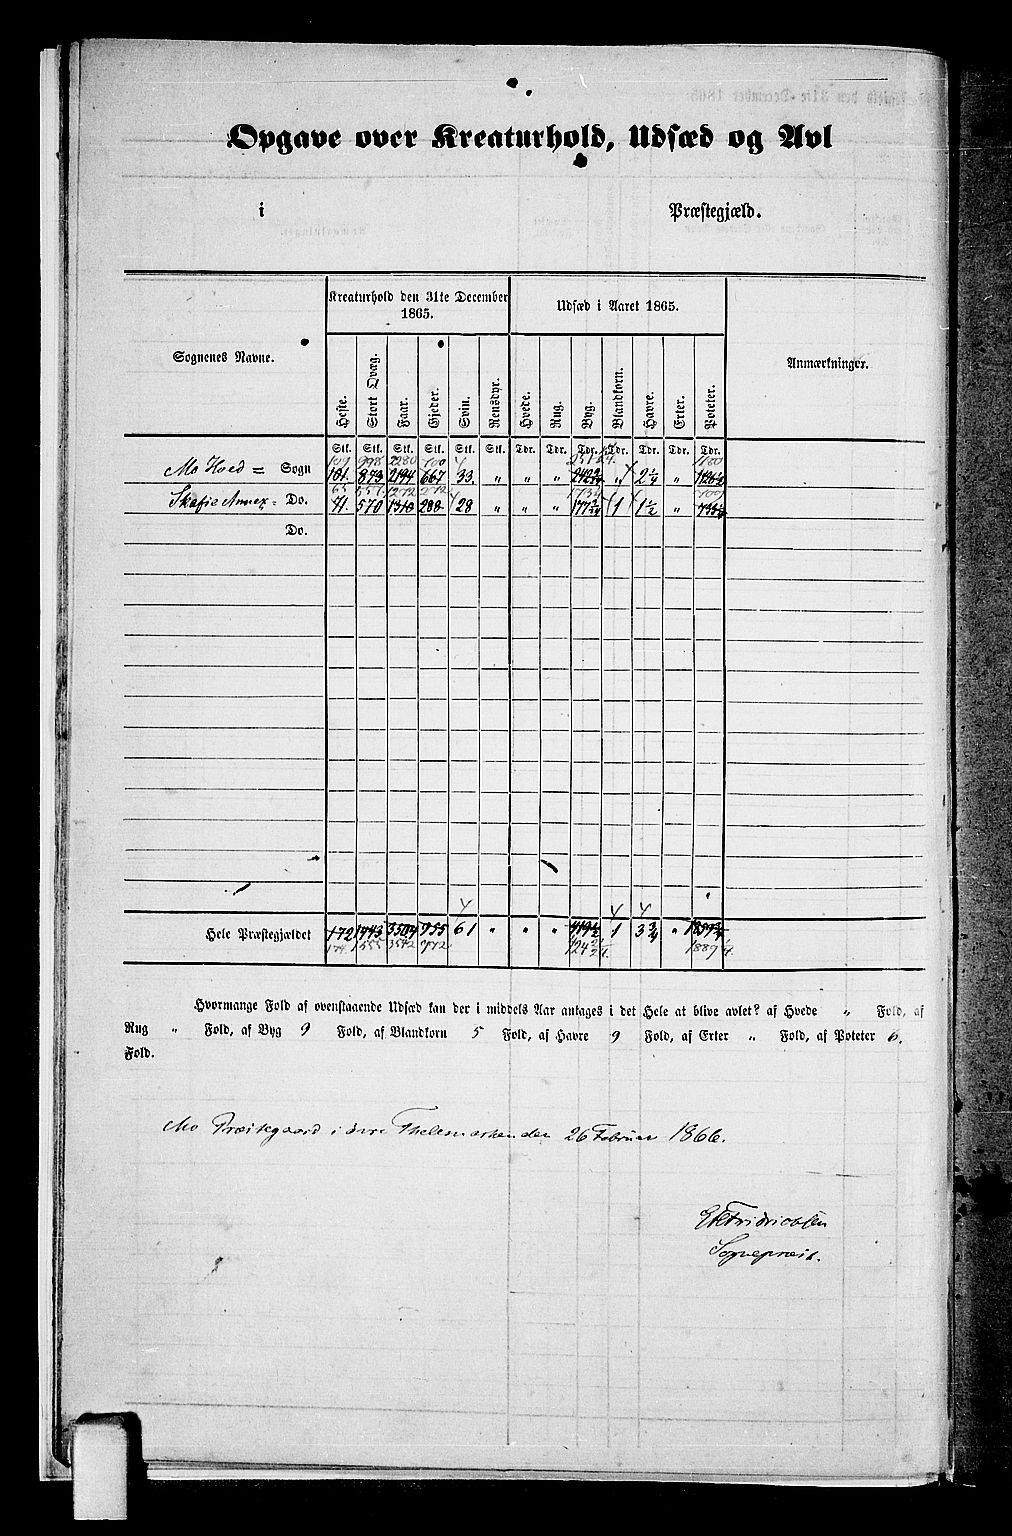 Opgave over Kreaturhold, Udsæd og Avl
i Præstegjæld.
Kreaturhold den 31te December 1865.
Udsæd i Aaret 1865.
Sognenes Navne.
Anmærkninger.
Heste. Stort Qvæg. Faar. Gjeder. Sviin. Rensdyr. Hvede. Rug. Byg. Blandkorn. Havre. Erter. Poteter.
Stk. Stk. Stk. Stk. Stk. Stk. Tdr. Tdr. Tdr. Tdr. Tdr. Tdr. Tdr.
109 998 2280 700
Mo Hoved = Sogn 101. 873 2194 667 33. „ „ „ „ 2 1/4 „
65 557 1272 272
Skafse Annex = Do. 71. 570 1310 288 28 „ „ „ 1 1 1/2 „
Do.
Hele Præstegjældet 172 1443 3504 955 61 „ „ „ 1 3 3/4 „
174. 1555 3542 972
Hvormange Fold af ovenstaaende Udsæd kan der i middels Aar antages i det Hele at blive avlet? af Hvede „ Fold, af
Rug „ Fold, af Byg 9 Fold, af Blandkorn 5 Fold, af Havre 9 Fold, af Erter „ Fold, af Poteter 6.
Fold.
Mo Præstegaard i övre Thelemarken den 26 Februar 1866.
Fridrichsen
Sognepræst.